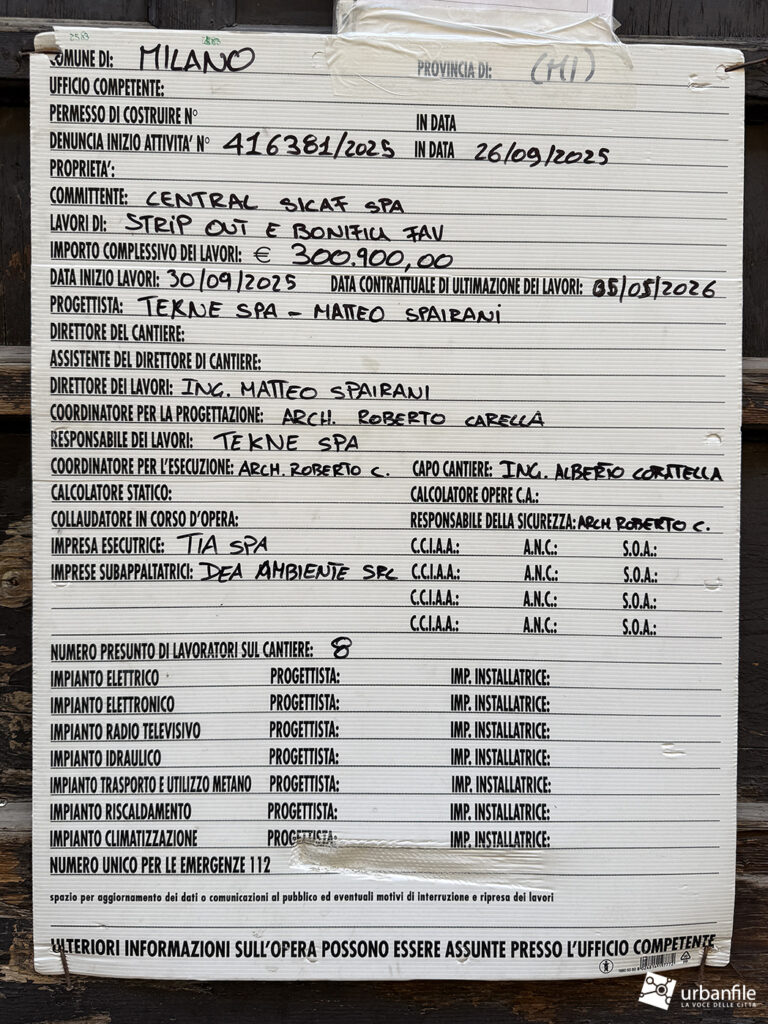 COMUNE DI: MILANO PROVINCIA DI: (MI)
UFFICIO COMPETENTE:
PERMESSO DI COSTRUIRE N° IN DATA
DENUNCIA INIZIO ATTIVITA' N° 416381/2025 IN DATA 26/09/2025
PROPRIETA':
COMMITTENTE: CENTRAL SICAF SPA
LAVORI DI: STRIP OUT E BONIFICA FAV
IMPORTO COMPLESSIVO DEI LAVORI: € 300.900,00
DATA INIZIO LAVORI: 30/09/2025 DATA CONTRATTUALE DI ULTIMAZIONE DEI LAVORI: 05/05/2026
PROGETTISTA: TEKNE SPA - MATTEO SPAIRANI
DIRETTORE DEL CANTIERE:
ASSISTENTE DEL DIRETTORE DI CANTIERE:
DIRETTORE DEI LAVORI: ING. MATTEO SPAIRANI
COORDINATORE PER LA PROGETTAZIONE: ARCH. ROBERTO CARELLA
RESPONSABILE DEI LAVORI: TEKNE SPA
COORDINATORE PER L'ESECUZIONE: ARCH. ROBERTO C. CAPO CANTIERE: ING. ALBERTO CORATELLA
CALCOLATORE STATICO: CALCOLATORE OPERE C.A.:
COLLAUDATORE IN CORSO D'OPERA: RESPONSABILE DELLA SICUREZZA: ARCH ROBERTO C.
IMPRESA ESECUTRICE: TIA SPA C.C.I.A.A.: A.N.C.: S.O.A.:
IMPRESE SUBAPPALTATRICI: DEA AMBIENTE SRL C.C.I.A.A.: A.N.C.: S.O.A.:
C.C.I.A.A.: A.N.C.: S.O.A.:
C.C.I.A.A.: A.N.C.: S.O.A.:
NUMERO PRESUNTO DI LAVORATORI SUL CANTIERE: 8
IMPIANTO ELETTRICO PROGETTISTA: IMP. INSTALLATRICE:
IMPIANTO ELETTRONICO PROGETTISTA: IMP. INSTALLATRICE:
IMPIANTO RADIO TELEVISIVO PROGETTISTA: IMP. INSTALLATRICE:
IMPIANTO IDRAULICO PROGETTISTA: IMP. INSTALLATRICE:
IMPIANTO TRASPORTO E UTILIZZO METANO PROGETTISTA: IMP. INSTALLATRICE:
IMPIANTO RISCALDAMENTO PROGETTISTA: IMP. INSTALLATRICE:
IMPIANTO CLIMATIZZAZIONE PROGETTISTA: IMP. INSTALLATRICE:
NUMERO UNICO PER LE EMERGENZE 112
spazio per aggiornamento dei dati o comunicazioni al pubblico ed eventuali motivi di interruzione e ripresa dei lavori
ULTERIORI INFORMAZIONI SULL'OPERA POSSONO ESSERE ASSUNTE PRESSO L'UFFICIO COMPETENTE
urbanfile
LA VOCE DELLE CITTÀ